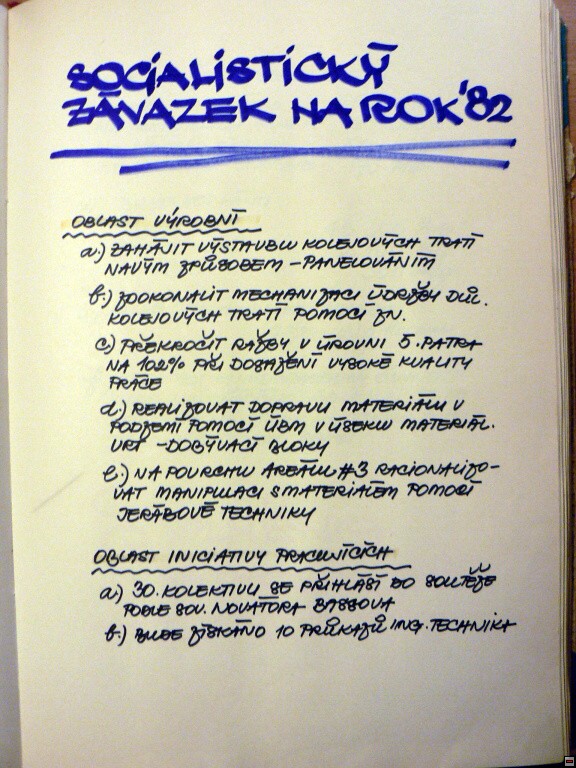 SOCIALISTICKÝ
ZÁVAZEK NA ROK '82
OBLAST VÝROBNÍ
a.) ZAHÁJIT VÝSTAVBU KOLEJOVÝCH TRATÍ
NOVÝM ZPŮSOBEM - PANELOVÁNÍM
b.) ZDOKONALIT MECHANIZACI ÚDRŽBY DŮL.
KOLEJOVÝCH TRATÍ POMOCÍ ZN.
c.) PŘEKROČIT RAŽBY V ÚROVNI 5. PATRA
NA 102% PŘI DOSAŽENÍ VYSOKÉ KVALITY
PRÁCE
d.) REALIZOVAT DOPRAVU MATERIÁLU V
PODZEMÍ POMOCÍ ÚBM V ÚSEKU MATERIÁL.
VRT - DOBÝVACÍ BLOKY
e.) NA POVRCHU AREÁLU #3 RACIONALIZO-
VAT MANIPULACI S MATERIÁLEM POMOCÍ
JEŘÁBOVÉ TECHNIKY
OBLAST INICIATIVY PRACUJÍCÍCH
a.) 30. KOLEKTIVU SE PŘIHLÁSÍ DO SOUTĚŽE
PODLE SOV. NOVÁTORA BASSOVA
b.) BUDE ZÍSKÁNO 10 PRŮKAZŮ ING. TECHNIKA